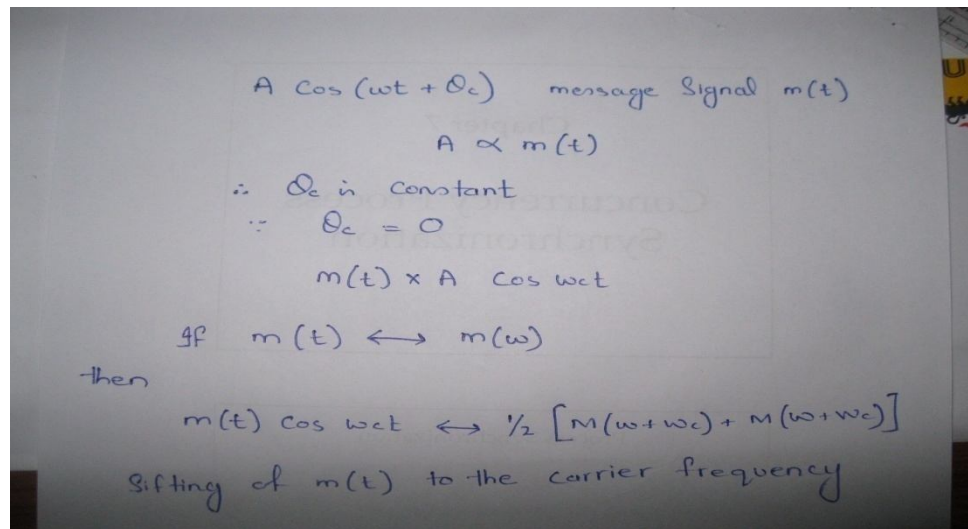 A Cos (wt + θc) message Signal m(t)
A ∝ m(t)
∴ θc is constant
∵ θc = 0
m(t) × A Cos wct
If m(t) ↔ m(w)
then
m(t) cos wct ↔ 1/2 [M(w+wc) + M(w+wc)]
Sifting of m(t) to the carrier frequency